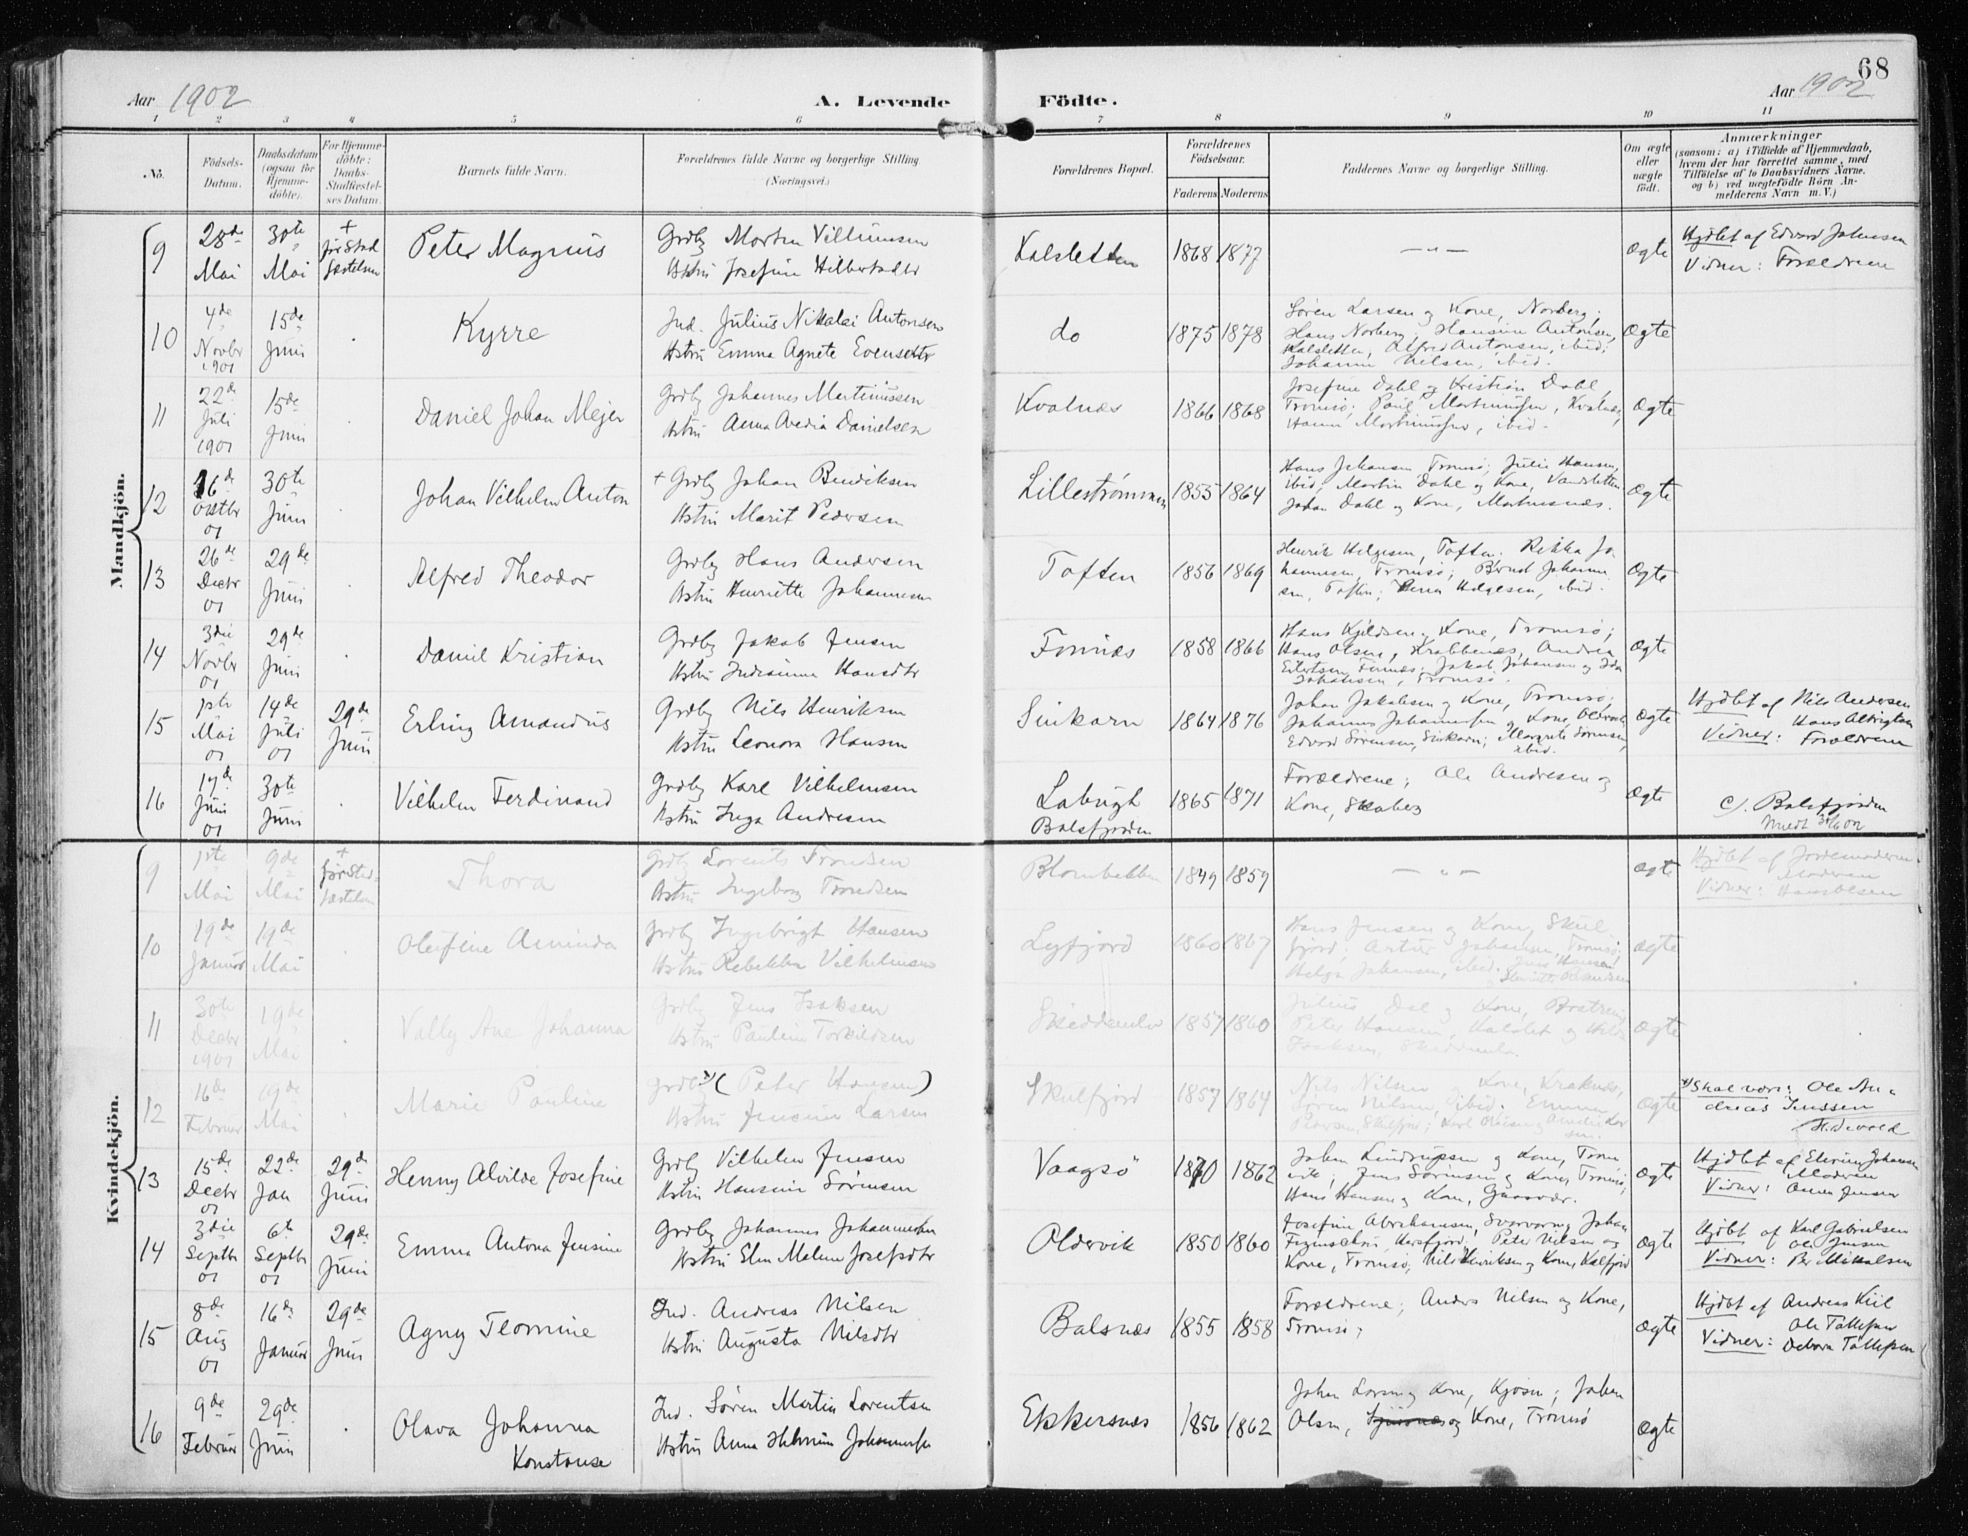 68
Aar 1902
A. Levende Födte.
Aar 1902
1 2 3 4 5 6 7 8 9 10 11
No.
Födsels-Datum.
Daabsdatum (ogsaa for Hjemme-döbte).
For Hjemme-döbte: Daabs-Stadfæstel-ses Datum.
Barnets fulde Navn.
Forældrenes fulde Navne og borgerlige Stilling (Næringsvei.)
Forældrenes Bopæl.
Forældrenes Födselsaar.
Faderens Moderens
Faddernes Navne og borgerlige Stilling.
Om ægte eller uægte födt.
Anmærkninger
(saasom: a) i Tilfælde af Hjemmedaab,
hvem der har forrettet samme, med
Tilföielse af to Daabsvidners Navne.
og b) ved uægtefödte Börn An-
melderens Navn m. V.)
Mandkjön.
9 28de Mai 30te Mai + før Stadfæstelsen Peter Magnus Grdbr Morten Villumsen Hstru Josefine Hilbertsdtr Kalsletten 1868 1877 — " — Ægte Hjdbt af Edvard Johnsen Vidner: Forældrene
10 4de Novbr 1901 15de Juni . Kyrre Ind. Julius Nikolai Antonsen Hstru Emma Agnete Evensdtr do 1875 1878 Søren Larsen og Kone, Norberg; Hans Norberg, Hansine Antonsen, Kalsletten, Alfred Antonsen, ibid; Johanna Nilsen, ibid. Ægte
11 22de Juli 1901 15de Juni . Daniel Johan Mejer Grdbr Johannes Martinussen Hstru Anna Avedia Danielsen Kvalnæs 1866 1868 Josefine Dahl og Kristian Dahl, Tromsø; Paul Martinussen, Kvalnæs, Hanna Martinussen, ibid. Ægte
12 16de Octbr 01 30te Juni . Johan Vilhelm Anton + Grdbr Johan Bendiksen Hstru Marit Pedersen Lillestrømmen 1855 1864 Hans Johansen Tromsø; Julie Hansen, ibid, Martin Dahl og Kone, Johan Dahl og Kone, Ægte
13 26de Decbr 01 29de Juni . Alfred Theodor Grdbr Hans Andersen Hstru Henriette Johannesen Toften 1856 1869 Henrik Helgesen, Toften. Rikka Jo-hannesen, Tromsø; Bernt Johanne-sen, Toften; Helgesen, ibid. Ægte
14 3die Novbr 01 29de Juni . Daniel Kristian Grdbr Jakob Jensen Hstru Hansdtr Finnæs 1858 1866 Hans Kjeldsen og Kone, Tromsø; Hans Olsen, Krabbenæs, Andrea Eilertsen, Finnæs; Jakob Johansen og Ida Johansen, Tromsø. Ægte
15 1ste Mai 01 14de Juli 01 29de Juni Erling Amandus Grdbr Nils Henriksen Hstru Leonora Hansen Sinkarn 1864 1876 Johan Jakobsen og Kone, Tromsø; Johannes Johannessen og Kone, Oldervik Edvard Sørensen, Sinkarn; Margrete Sørensen, ibid. Ægte Hjdbt af Nils Andersen Hans Albrigtsen Vidner: Forældrene
16 17de Juni 01 30te Juni . Vilhelm Ferdinand Grdbr Karl Vilhelmsen Hstru Inga Andresen Labugt Balsfjorden 1865 1871 Forældrene; Ole Andresen og Kone, Skaberg Ægte Balsfjorden Meldt 30/6 02
Kvindekjön.
9 1ste Mai 9de Mai + før Stadfæstelsen Thora Grdbr Lorents Trondsen Hstru Ingeborg Trondsen Blombakken 1849 1859 — " — Ægte Hjdbt af Jordemoderen. Moderen Vidner: Hans Olsen
10 19de Januar 19de Mai . Olefine Aminda Grdbr Ingebrigt Hansen Hstru Rebekka Vilhelmsen Lyfjord 1860 1867 Hans Jensen og Kone, Skul-fjord; Artur Johansen, Tromsø; Helga Johansen, ibid. Jens Hansen, Ægte
11 30te Decbr 1901 19de Mai . Vally Ane Johanna Grdbr Jens Isaksen Hstru Pauline Torkildsen Skeddemlw 1857 1860 Julius Dal og Kone, Peter Hansen, Kaldslet og Isaksen, Ægte
12 16de Februar 19de Mai . Marie Pauline Grdbr x) (Peter Hansen) Hstru Jensine Larsen Skulfjord 1857 1864 Nils Nilsen og Kone, Kraknæs, Søren Nilsen, ibid. Emma Skulfjord; Ægte x) Skal være: Ole An-dreas Jenssen
13 15de Decbr 01 22de Jan 29de Juni Henny Alvilde Josefine Grdbr Vilhelm Jensen Hstru Hansine Sørensen Vaagsø 1870 1862 Johan Lindrupsen og Kone, Jens Sørensen og Kone, Tromsø; Hans Hansen og Kone, Gaasvær. Ægte Hjdbt af Johansen Moderen Vidner: Anna Jensen
14 3die Septbr 01 6te Septbr 01 29de Juni Emma Antona Jensine Grdbr Johannes Johannessen Hstru Elen Malene Josefsdtr Oldervik 1850 1860 Josefine Abrahamsen, Johan Peter Nilsen og Kone, Tromsø; Nils Henriksen og Kone, Kalfjord Ægte Hjdbt af Karl Gabrielsen Ole Jensen Vidner: Per Mikalsen
15 8de Aug 01 16de Januar 29de Juni Agny Leonine Ind. Andreas Nilsen Hstru Augusta Nilsdtr Balsnæs 1855 1858 Forældrene; Anders Nilsen og Kone, Tromsø; Ægte Hjdbt af Andreas Kiil Ole Tollefsen Vidner: Debora Tollefsen
16 9de Februar 29de Juni . Olava Johanna Konstanse Ind. Søren Martin Lorentsen Hstru Anna Helmine Johannessen Ekkersnæs 1856 1862 Johan Larsen og Kone, Kjosen; Johan Olsen, og Kone, Tromsø Ægte